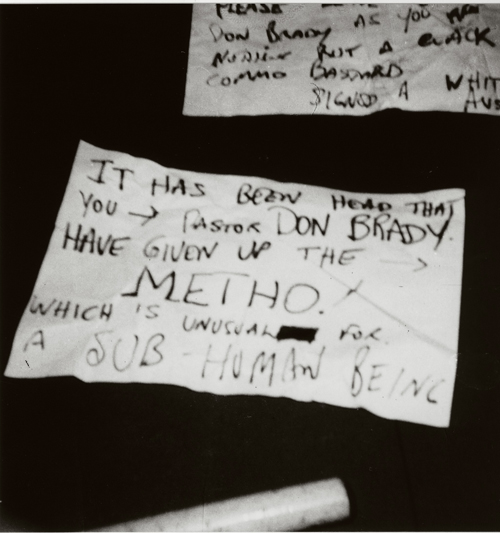 PLEASE AS YOU ARE
DON BRADY
NOTHING BUT A BLACK
COMMO BASDARD
SIGNED A WHIT
AUS
IT HAS BEEN HEAD THAT
YOU → PASTOR DON BRADY.
HAVE GIVEN UP THE →
METHO.
WHICH IS UNUSUAL FOR.
A SUB-HUMAN BEING